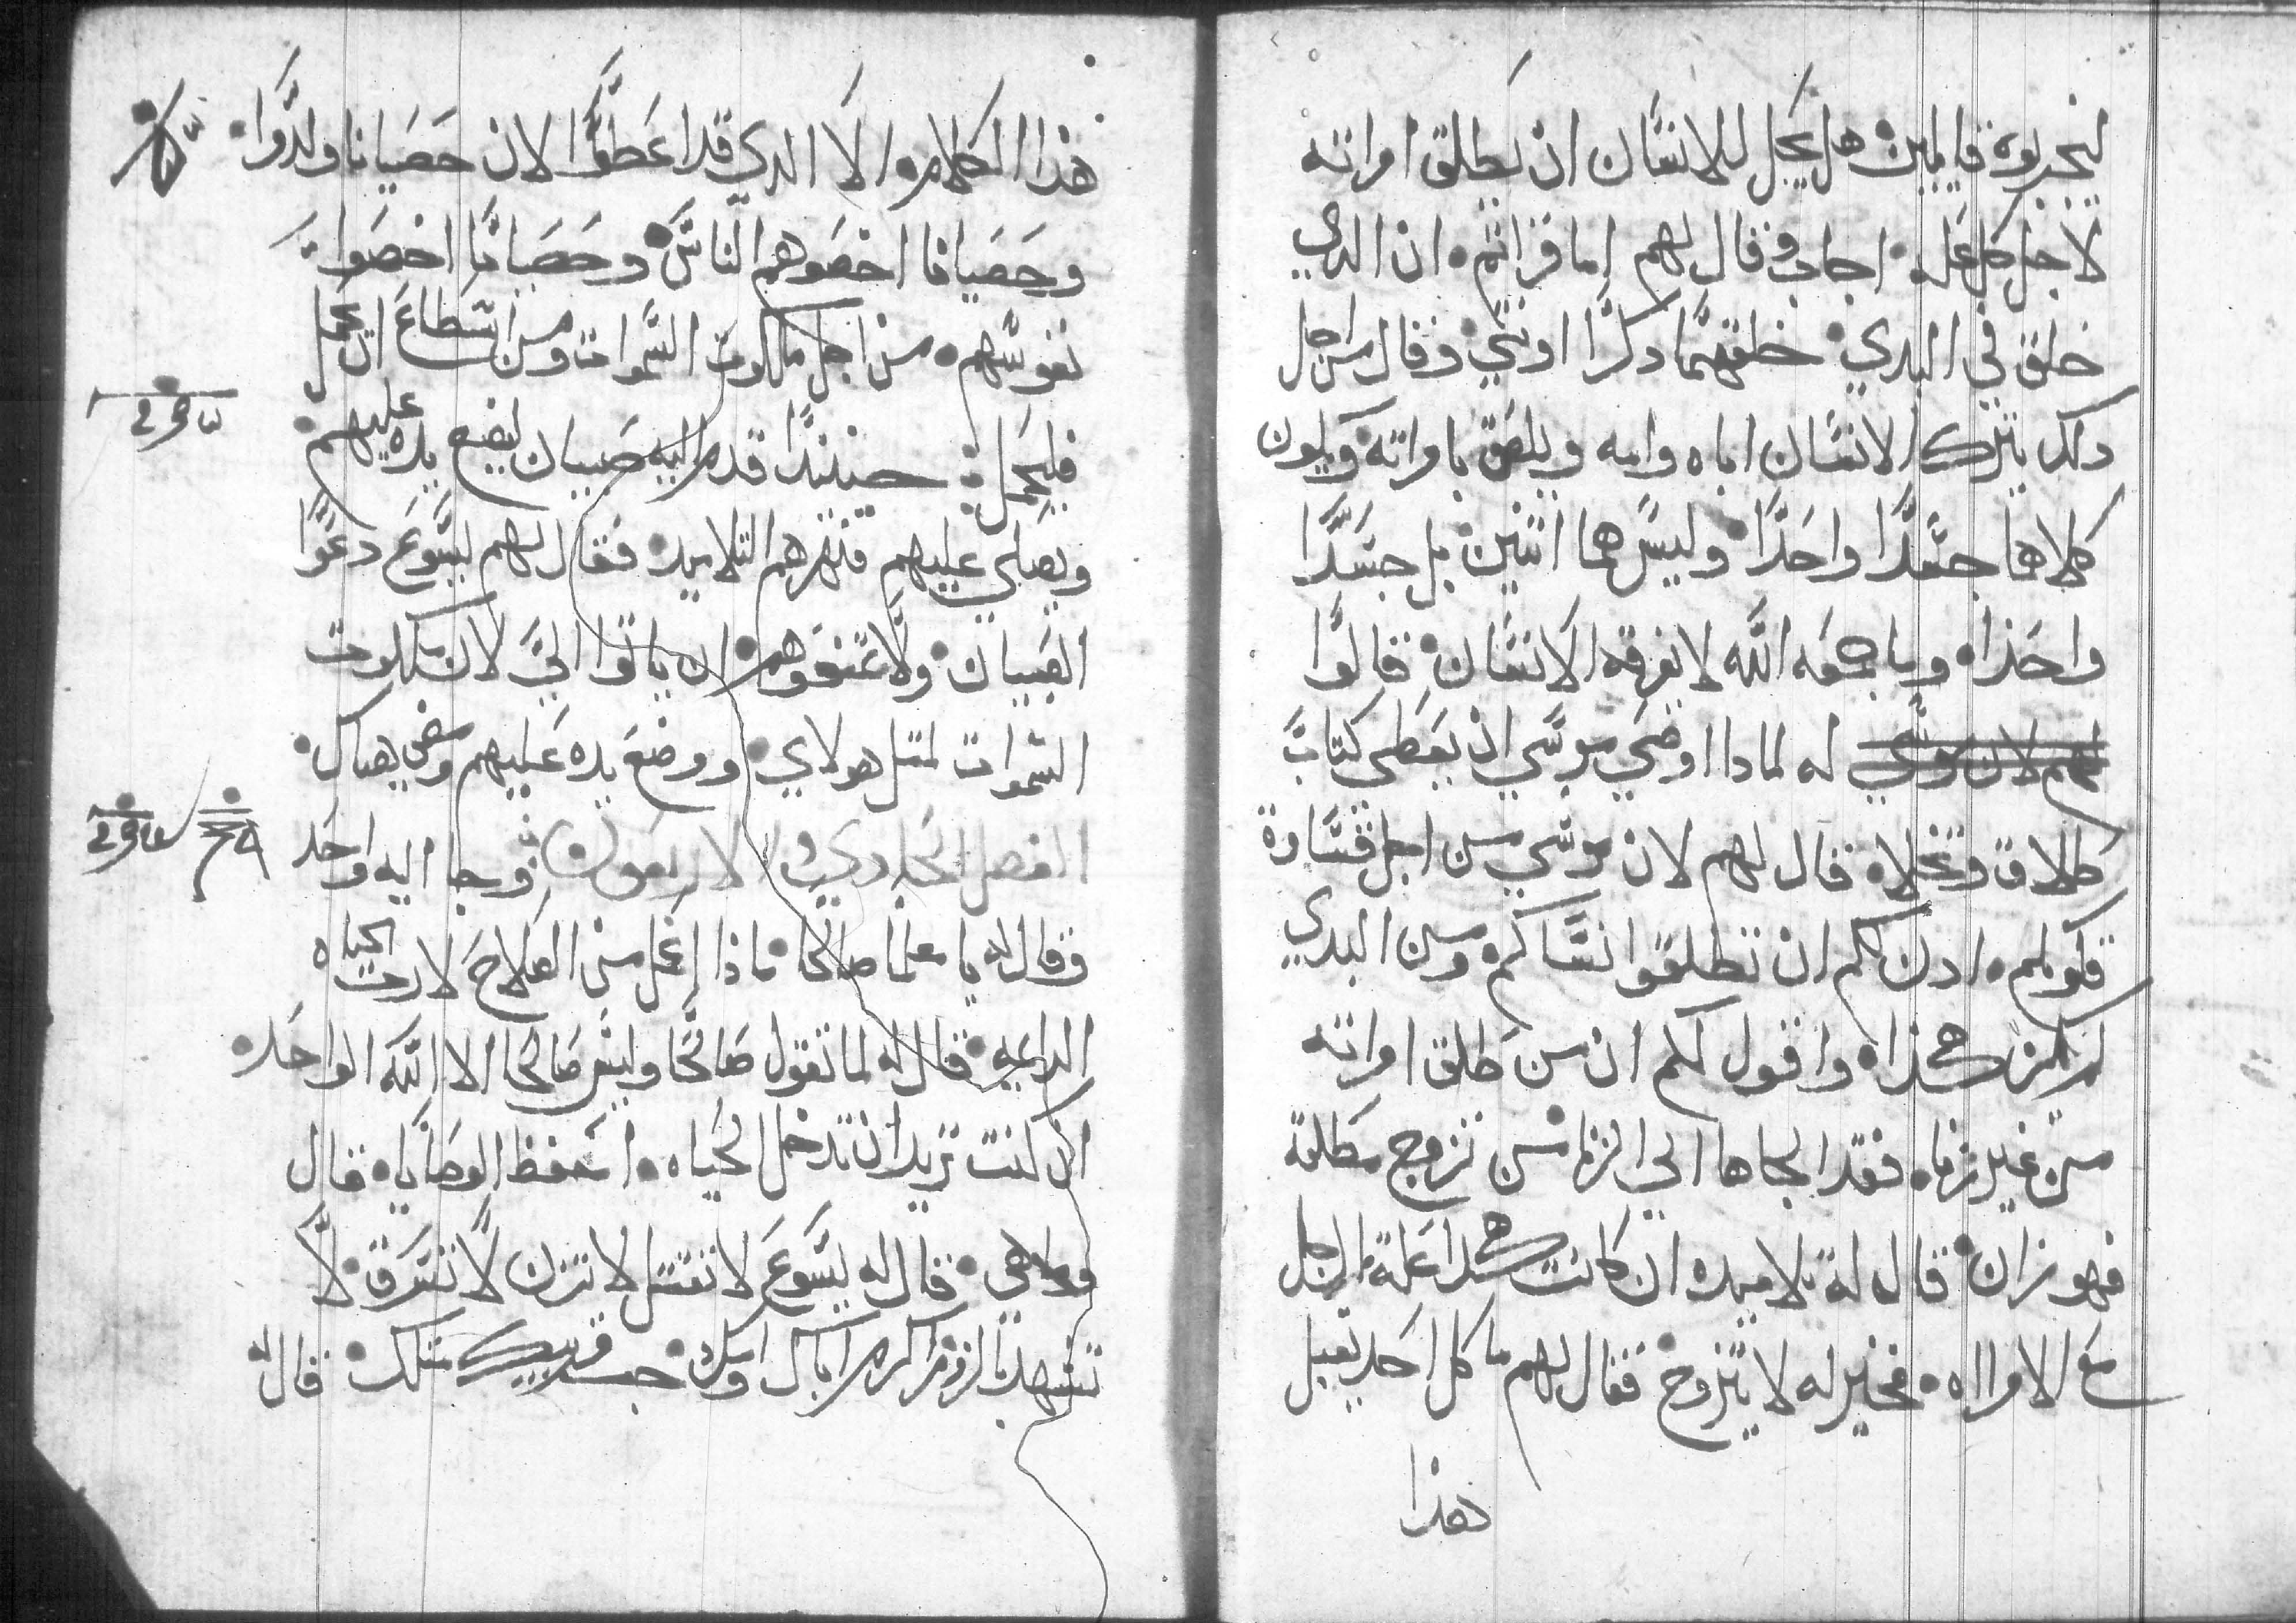 ليجربوه قايلين هل يحل للانسان ان يطلق امراته
لاجل كل عله اجاب وقال لهم اما قراتم ان الدي
خلق في البدي خلقهما دكرًا اونتي وقال من اجل
دلك يترك الانسان اباه وامه ويلصق بامراته ويكون
كلاهما جسدًا واحدًا وليس هما اتنين بل جسدًا
واحدًا وما جمعه الله لا يفرقه الانسان قالوا
له لمادا اوصي موسي ان يعطي كتاب
طلاق وتخلاه قال لهم لان موسي من اجل قساوة
قلوبكم ادن لكم ان تطلقوا نساكم ومن البدي
لم يكن هكذا واقول لكم ان من طلق امراته
من غير زنا فقد الجاها الي الزنا من تزوج مطلقة
فهو زان قال له تلاميده ان كانت هكدا علة الرجل
مع الامراه فخير له لا يتزوج فقال لهم ما كل احد يقبل
هذا
هذا الكلام الا الدي قد اعطوا لان خصيانا ولدوا
وخصيانا اخصوهم الناس وخصيانا اخصوا
نفوسهم من اجل ملكوت السموات ومن استطاع ان يحمل
فليحمل حينيدًا قدم اليه صبيان ليضع يده عليهم
ويصلي عليهم فنهرهم التلاميد فقال لهم ليسوع دعوا
الصبيان ولا تمنعوهم ان ياتوا الي لان ملكوت
السموات لمتل هولاي ووضع يده عليهم ومضي من هناك
الفصل الحادي والاربعون وجا اليه واحد
وقال له يا معلما صالحا ماذا اعمل من الصلاح لارت الحياه
الدايمه قال له لما تقول صالحا وليس صالحا الا الله الواحد
ان كنت تريد ان تدخل الحياه احفظ الوصايا قال
وما هي قال له ليسوع لا تقتل لا تزن لا تسرق لا
تشهد بالزور اكرم اباك وامك حب قريبك متلك قال له